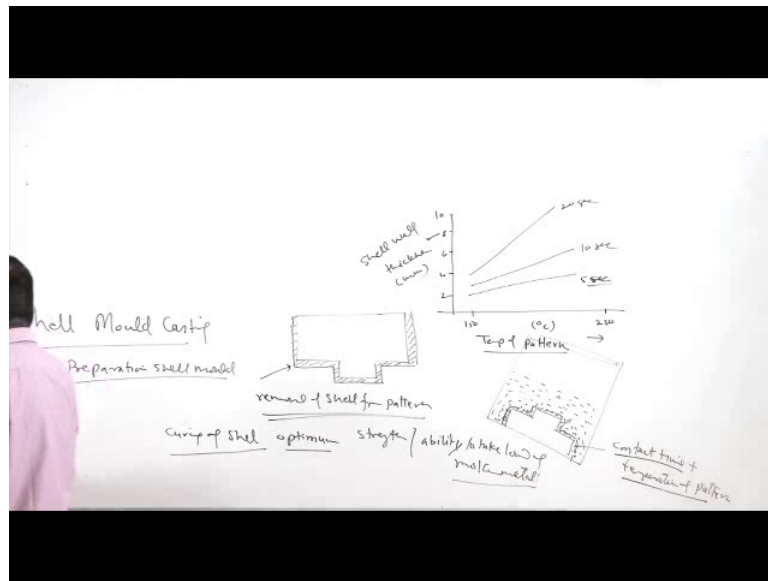 hell Mould Casting
Preparation shell mould
removal of shell from pattern
Curing of shell optimum strength / ability to take load of
molten metal
Shell wall
thickness
(mm)
10
8
6
4
2
20 sec
10 sec
5 sec
150 (°C) 250
Temp of pattern →
contact time +
temperature of pattern